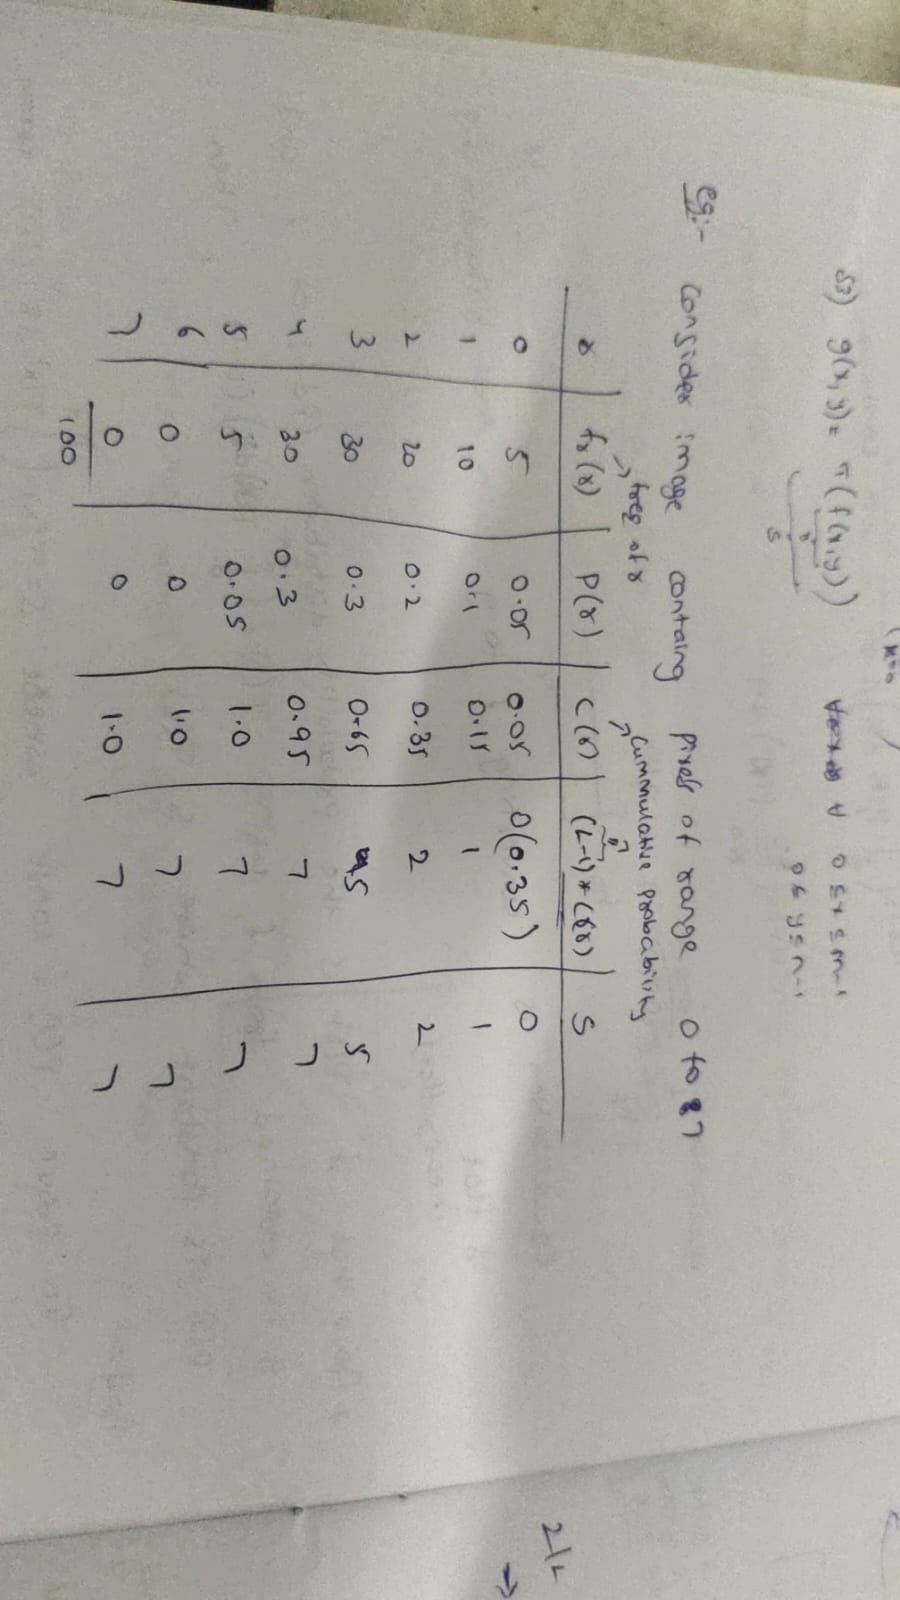 S3) g(x,y) = T(f(x,y)) ∀ 0 ≤ x ≤ m-1
r
S
0 ≤ y ≤ n-1
eg:- Consider image containg pixels of range 0 to 7
freq of r
Cummulative probability
r fr(r) P(r) C(r) (L-1)*C(r) S
0 5 0.05 0.05 0(0.35) 0
1 10 0.1 0.15 1 1
2 20 0.2 0.35 2 2
3 30 0.3 0.65 5 5
4 30 0.3 0.95 7 7
5 5 0.05 1.0 7 7
6 0 0 1.0 7 7
7 0 0 1.0 7 7
100